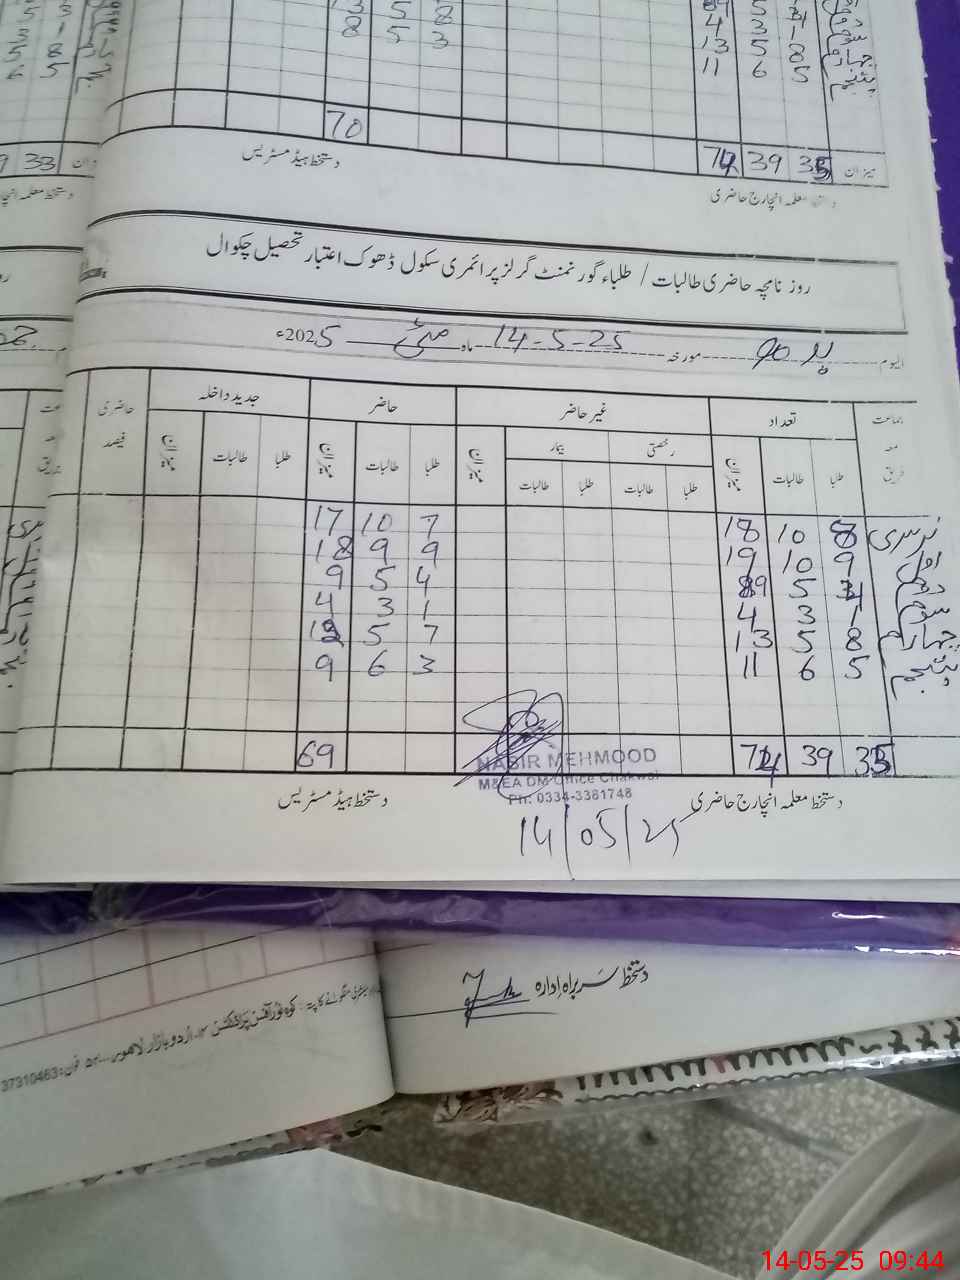 13 5 8
8 5 3
4 3 1
13 5 8
11 6 5
چہارم
پنجم
70
میزان 35 39 74
33
دستخط ہیڈ مسٹریس
دستخط معلمہ انچارج حاضری
روز نامچہ حاضری طالبات / طلباء گورنمنٹ گرلز پرائمری سکول ڈھوک اعتبار تحصیل چکوال
الیوم بدھ مورخہ 14-5-25 ماہ مئی 2025ء
جماعت معہ فریق تعداد غیر حاضر حاضر جدید داخلہ حاضری فیصد
رخصتی بیمار
طلبا طالبات میزان طلبا طالبات طلبا طالبات میزان طلبا طالبات میزان طلبا طالبات میزان
نرسری 8 10 18 7 10 17
اول 9 10 19 9 9 18
دوم 4 5 9 4 5 9
سوم 1 3 4 1 3 4
چہارم 8 5 13 7 5 12
پنجم 5 6 11 3 6 9
35 39 74 69
NASIR MEHMOOD
M&EA DM Office Chakwal
Ph: 0334-3361748
دستخط معلمہ انچارج حاضری
دستخط ہیڈ مسٹریس
14/05/25
دستخط سربراہ ادارہ
کوہ نور آفس پراڈکٹس ۱۲۔ اردو بازار لاہور
فون: 37310463
14-05-25 09:44